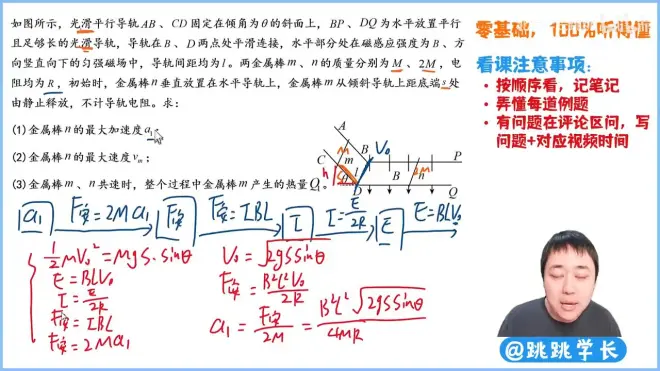 如图所示，光滑平行导轨AB、CD固定在倾角为θ的斜面上，BP、DQ为水平放置平行
且足够长的光滑导轨，导轨在B、D两点处平滑连接，水平部分处在磁感应强度为B、方
向竖直向下的匀强磁场中，导轨间距均为l。两金属棒m、n的质量分别为M、2M，电
阻均为R，初始时，金属棒n垂直放置在水平导轨上，金属棒m从倾斜导轨上距底端s处
由静止释放，不计导轨电阻。求：
(1)金属棒n的最大加速度a₁
(2)金属棒n的最大速度vₘ；
(3)金属棒m、n共速时，整个过程中金属棒m产生的热量Q₁。
A
B
V₀
P
C
M
m
l
B
2M
n
h
θ
D
Q
a₁ F安=2Ma₁ F安 F安=IBL I I=E/2R E E=BLV₀
1/2 MV₀²=MgS·sinθ
E=BLV₀
I=E/2R
F安=IBL
F安=2Ma₁
V₀=√2gSsinθ
F安=B²L²V₀/2R
a₁=F安/2M=B²L²√2gSsinθ/4MR
零基础，100%听得懂
看课注意事项：
• 按顺序看，记笔记
• 弄懂每道例题
• 有问题在评论区问，写
问题+对应视频时间
@跳跳学长